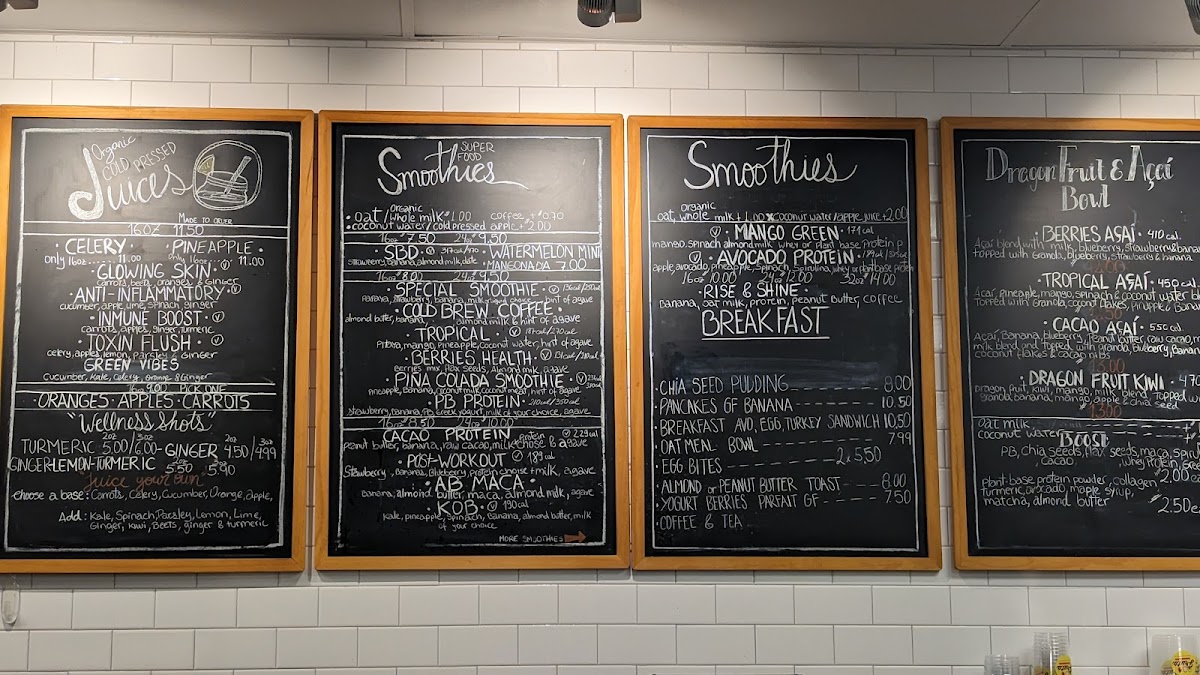 Organic
COLD PRESSED
Juices
MADE TO ORDER
16OZ 11.50
· CELERY · PINEAPPLE ·
only 16oz ..... 11.00 only 16oz ..... 11.00
· GLOWING SKIN · V
Carrots, beets, oranges, & Ginger
· ANTI-INFLAMMATORY · V
cucumber, apple, lime, Spinach, ginger
· INMUNE BOOST · V
carrots, apples, ginger, turmeric
· TOXIN FLUSH · V
celery, apples, lemon, Parsley & Ginger
GREEN VIBES
Cucumber, Kale, Celery, Orange & Ginger
16oz 9.00 PICK ONE
· ORANGES · APPLES · CARROTS
"Wellness Shots"
2oz 3oz 2oz 3oz
TURMERIC 5.00/6.00 - GINGER 4.50/4.99
GINGER-LEMON-TURMERIC 5.50 5.90
Juice your own
choose a base: Carrots, Celery, Cucumber, Orange, apple,
Add: Kale, Spinach, Parsley, Lemon, Lime,
Ginger, Kiwi, Beets, ginger & turmeric
Smoothies SUPER FOOD
Organic
· oat / Whole milk 1.00 coffee + 0.70
· coconut water / cold pressed apple · 2.00
16oz 7.50 24oz 9.50
· SBD · WATERMELON MINT
strawberry, banana, almond milk, date · MANGONADA 7.00
16oz 8.00 24oz 9.50
· SPECIAL SMOOTHIE · V
Papaya, strawberry, banana, milk your choice, hint of agave
· COLD BREW COFFEE ·
almond butter, banana, almond milk & hint of agave
· TROPICAL · V 181 cal/270 cal
Pitaya, mango, pineapple, Coconut water, hint of agave
· BERRIES HEALTH · V
Berries mix, flax seeds, Almond milk, agave
· PIÑA COLADA SMOOTHIE · V
pineapple, Banana, milk, coconut meal, hint of agave
· PB PROTEIN · 210 cal/350 cal
strawberry, banana, PB, Greek yogurt, milk of your choice, agave
16oz 8.50 24oz 10.00
· CACAO PROTEIN · V 229 cal
peanut butter, banana, raw cacao, milk chose & agave
· POST-WORKOUT · V 189 cal
Strawberry, Banana, Blueberry, protein choise + milk, agave
· AB MACA ·
banana, almond butter, maca, almond milk, agave
· KOB · V 190 cal
Kale, pineapple, Spinach, Banana, almond butter, milk
of your choice
MORE SMOOTHIES
Smoothies
organic
oat, whole milk + 1.00 coconut water / apple juice + 2.00
V · MANGO GREEN · 171 cal
mango, Spinach almond milk, whey or Plant base Protein P
V · AVOCADO PROTEIN ·
apple, avocado, pineapple, Spinach, Spirulina, whey or plant base protein
16oz 10.00 24oz 12.00 32oz 14.00
· RISE & SHINE ·
Banana, oat milk, protein, peanut butter, coffee
BREAKFAST
· CHIA SEED PUDDING 8.00
· PANCAKES GF BANANA 10.50
· BREAKFAST AVO, EGG TURKEY SANDWICH 10.50
· OATMEAL BOWL 7.99
· EGG BITES 2x5.50
· ALMOND or PEANUT BUTTER TOAST 8.00
· YOGURT BERRIES PARFAIT GF 7.50
· COFFEE & TEA
Dragon Fruit & Açaí
Bowl
· BERRIES AÇAÍ · 410 cal.
Açaí blend with milk, blueberry, Strawberry & banana
Topped with Granola, blueberry, strawberry & banana
· TROPICAL AÇAÍ · 450 cal
Açaí, pineapple, mango, Spinach & coconut water
Topped with Granola, coconut flakes, pineapple & Banana
· CACAO AÇAÍ · 550 cal.
Açaí, Banana, blueberry, Peanut butter, raw cacao,
milk blend and topped with Granola, blueberry, Banana
coconut flakes & cacao nibs
· DRAGON FRUIT KIWI · 470
Dragon fruit, kiwi, mango, milk blend, topped w
granola, banana, mango, apple & chia seed
13.00
oat milk
coconut water
BOOST
PB, chia seeds, flax seeds, maca,
cacao, whey Protein,
Plant base protein powder, collagen 2.00
turmeric, avocado, maple syrup,
matcha, almond butter 2.50